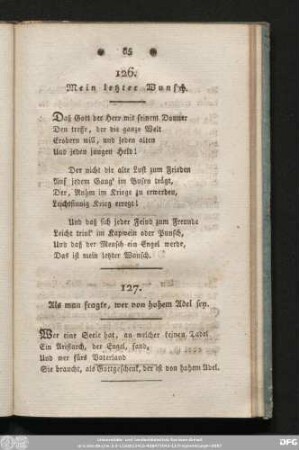 85
126.
Mein letzter Wunsch.
Daß Gott der Herr mit seinem Donner
Den treffe, der die ganze Welt
Erobern will, und jeden alten
Und jeden jungen Held!
Der nicht die alte Lust zum Frieden
Auf jedem Gang' im Busen trägt,
Der, Ruhm im Kriege zu erwerben,
Leichtsinnig Krieg erregt!
Und daß sich jeder Feind zum Freunde
Leicht trink' im Kapwein oder Punsch,
Und daß der Mensch ein Engel werde,
Das ist mein letzter Wunsch.
127.
Als man fragte, wer von hohem Adel sey.
Wer eine Seele hat, an welcher keinen Tadel
Ein Aristarch, der Engel, fand,
Und wer fürs Vaterland
Sie braucht, als Gottgeschenk, der ist von hohem Adel.
DFG